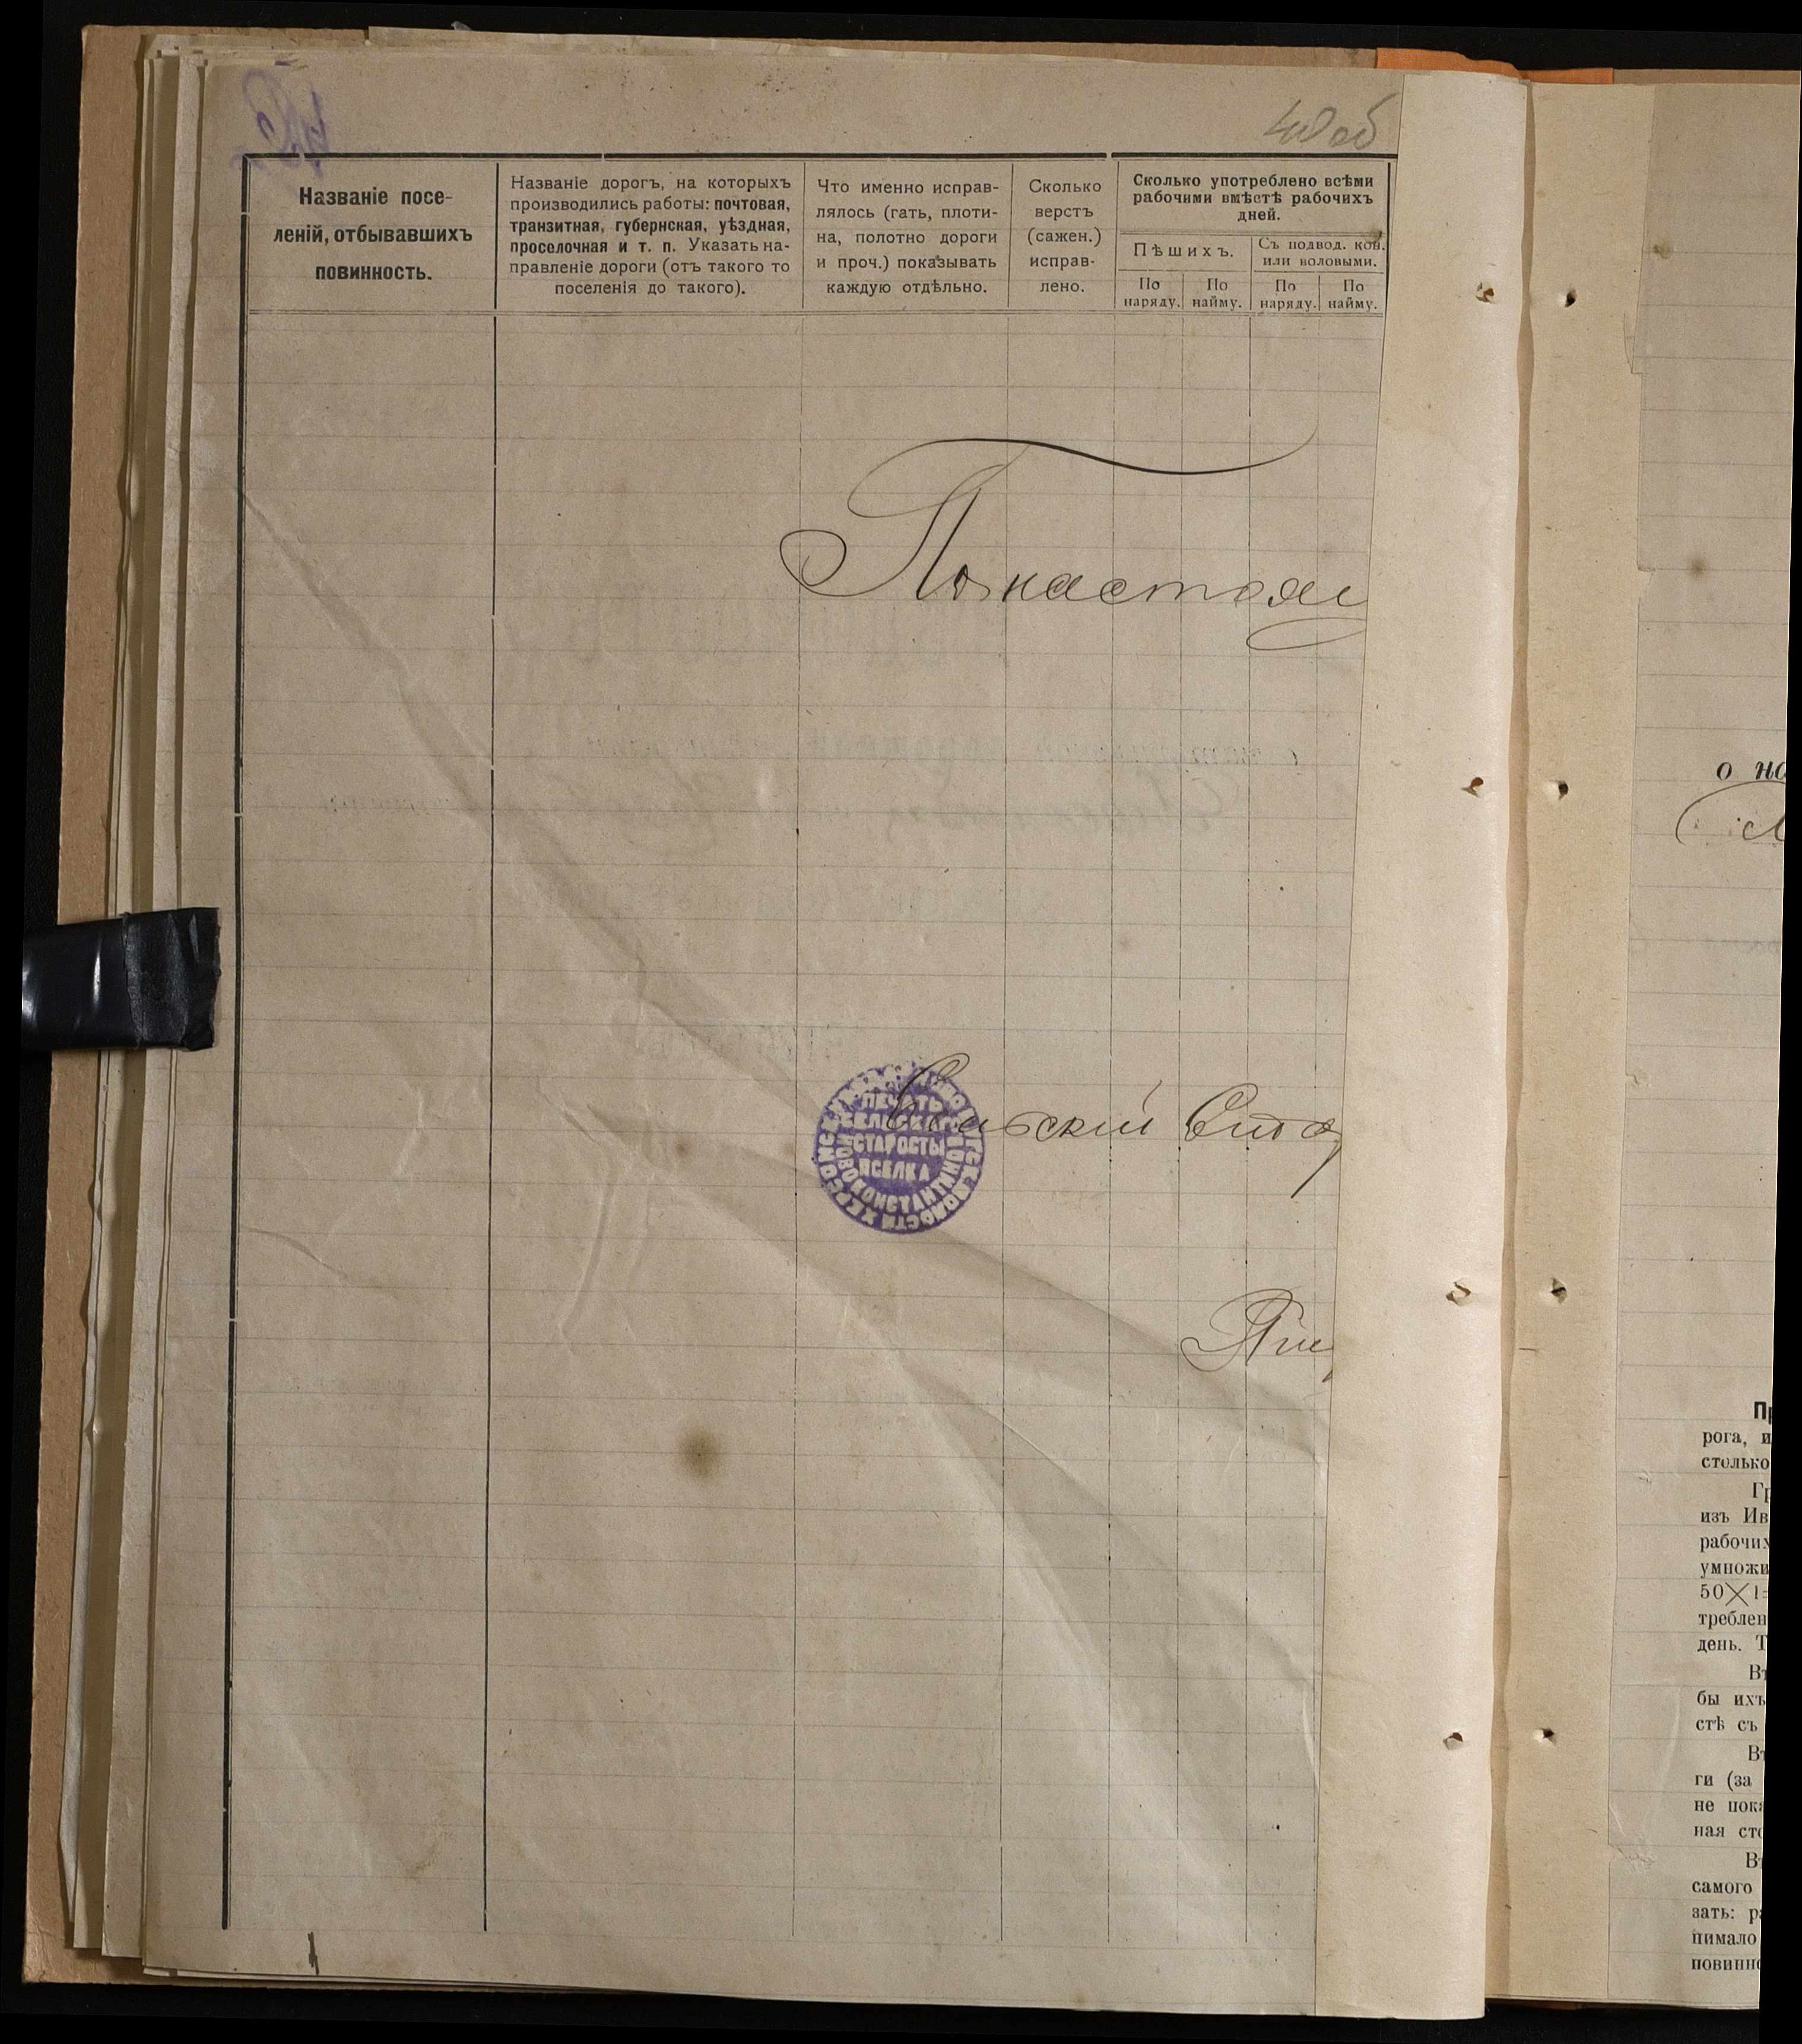 40об
Названіе посе-
леній, отбывавшихъ
повинность.
Названіе дорогъ, на которыхъ
производились работы: почтовая,
транзитная, губернская, уѣздная,
проселочная и т. п. Указать на-
правленіе дороги (отъ такого то
поселенія до такого).
Что именно исправ-
лялось (гать, плоти-
на, полотно дороги
и проч.) показывать
каждую отдѣльно.
Сколько
верстъ
(сажен.)
исправ-
лено.
Сколько употреблено всѣми
рабочими вмѣстѣ рабочихъ
дней.
Пѣшихъ.
Съ подвод. кон.
или воловыми.
По
наряду.
По
найму.
По
наряду.
По
найму.
По настоя
Сельскій Ста
ПЕЧАТЬ
СЕЛЬСКАГО
СТАРОСТЫ
ПСЕЛКА
НОВОКОНСТАНТИНО
Пи
о на
Пр
рога, и
столько
Гр
изъ Ив
рабочих
умножи
50×1=
треблен
день. Т
Вт
бы ихъ
стѣ съ
Вт
ги (за
не пока
ная сто
Вт
самого
зать: ра
нимало
повинно